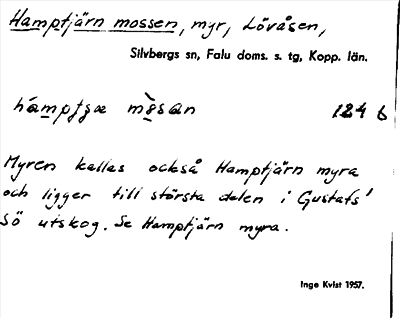 Hamptjärn mossen, myr, Lövåsen,
Silvbergs sn, Falu doms. s. tg, Kopp. län.
124 b
Myren kallas också Hamptjärn myra
och ligger till största delen i Gustafs'
Sö utskog. Se Hamptjärn myra.
Inge Kvist 1957.